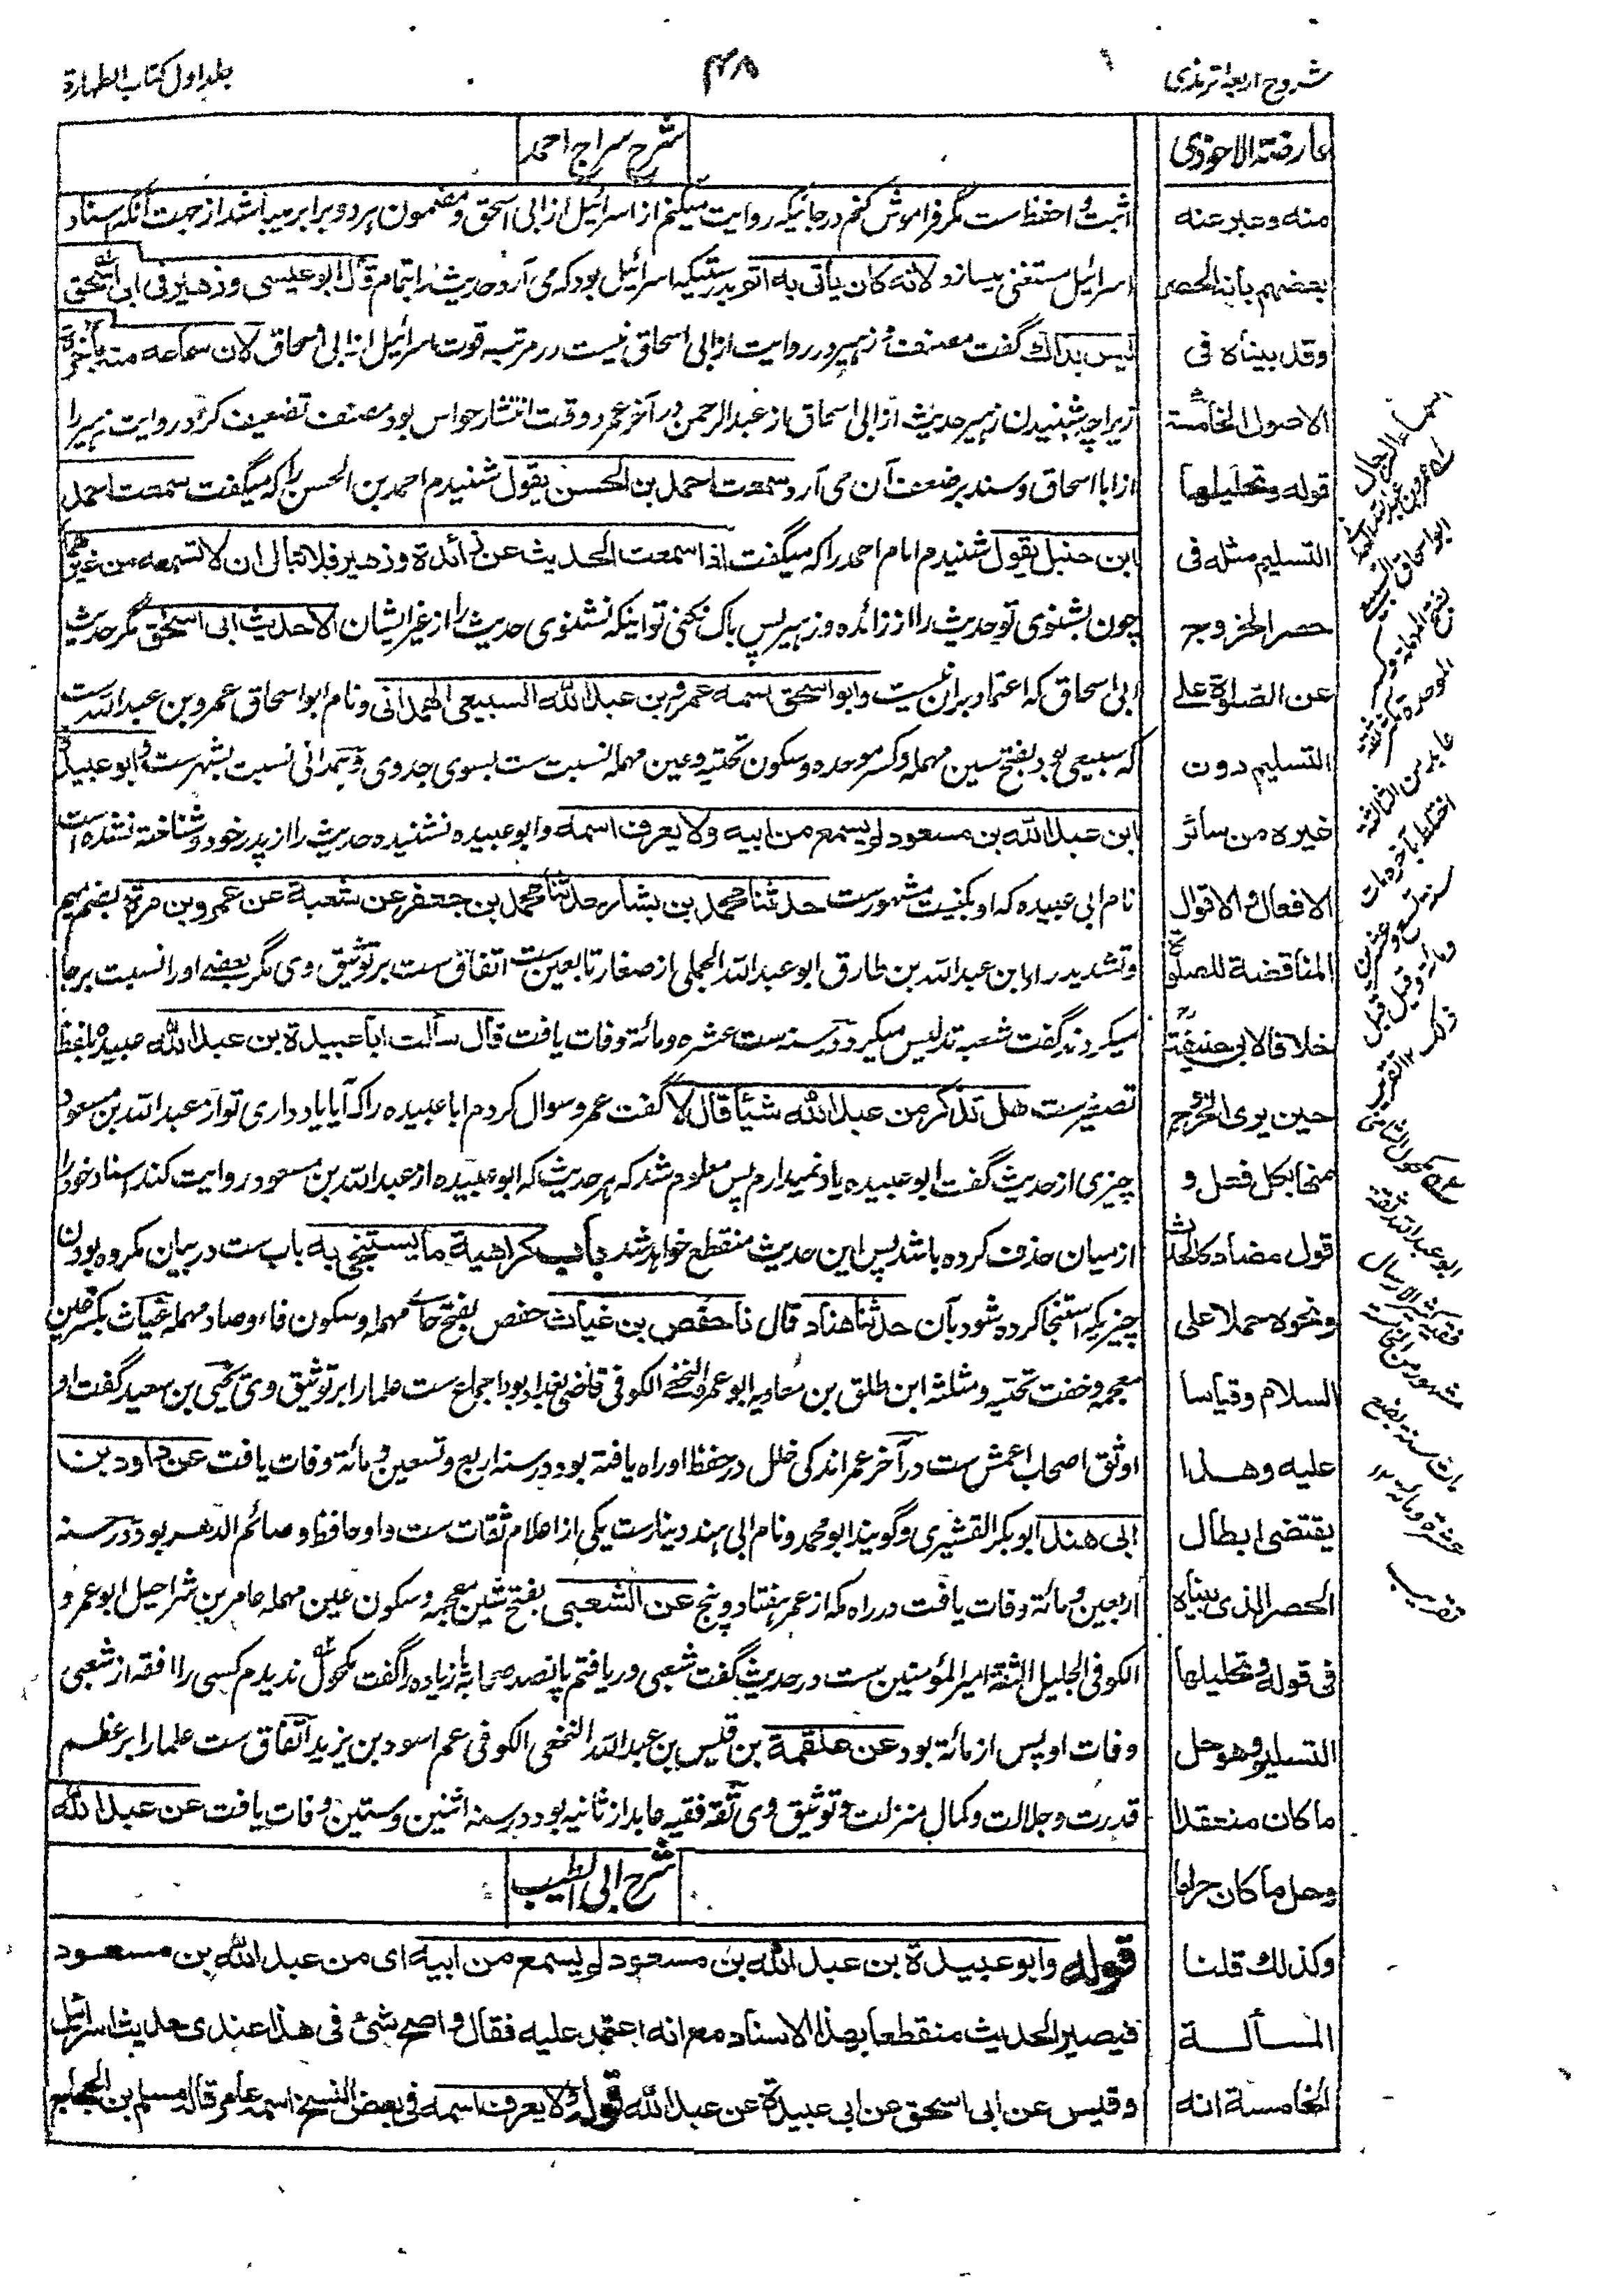 شروح اربعہ ترمذی
۴۸
جلد اول کتاب الطہارۃ
عارضۃ الاحوذی
منه وعبر عنه
بعضهم بانه الحصر
وقد بيناه فى
الاصول الخامسة
قوله وتحليلها
التسليم مثله فى
حصر الخروج
عن الصلوة على
التسليم دون
غيره من سائر
الافعال والاقوال
المناقضة للصلوة
خلافا لابى حنيفة
حين يرى الخروج
منها بكل فعل و
قول مضاد كالحدث
ونحوه حملا على
السلام وقياسا
عليه وهذا
يقتضى ابطال
الحصر الذى بيناه
فى قوله وتحليلها
التسليم وهو حل
ما كان منعقدا
وحل ما كان حراما
وكذلك قلنا
المسألة
الخامسة انه
شرح سراج احمد
اثبت و احفظ ست مگر فراموش کنم درجائیکہ روایت میکنم از اسرائیل از ابی اسحق و مضمون ہر دو برابر میباشد از جہت آنکہ اسناد
اسرائیل مستغنی میسازد لانه كان يأتى به اتم بدرستیکہ اسرائیل بود کہ می آرد حدیث را بتمام قال ابو عيسى وزهير فى ابى اسحق
ليس بذاك گفت مصنف و زہیر در روایت از ابی اسحاق نیست در مرتبہ قوت اسرائیل از ابی اسحاق لان سماعه منه باخرة
زیراچہ شنیدن زہیر حدیث از ابی اسحاق باز عبدالرحمن در آخر عمر و وقت انتشار حواس بود مصنف تضعیف کرد روایت زہیر را
از ابا اسحاق و سند بر ضعف آن می آرد سمعت احمد بن الحسن يقول شنیدم احمد بن الحسن را کہ میگفت سمعت احمد
ابن حنبل يقول شنیدم امام احمد را کہ میگفت اذا سمعت الحديث عن زائدة وزهير فلا تبال ان لا تسمعه من غيرهما
چون بشنوی تو حدیث را از زائدہ و زہیر پس باک نکنی تو اینکہ نشنوی حدیث را از غیر ایشان الا حديث ابى اسحق مگر حدیث
ابی اسحاق کہ اعتماد بر ان نیست وابو اسحق اسمه عمرو بن عبد الله السبيعى الهمدانى و نام ابو اسحاق عمرو بن عبداللہ ست
کہ سبیعی بود بفتح سین مہملہ و کسر موحدہ و سکون تحتیہ و عین مہملہ نسبت ست بسوی جدوی و ہمدانی نسبت بشہرست وابو عبيدة
ابن عبد الله بن مسعود لم يسمع من ابيه ولا يعرف اسمه و ابو عبیدہ نشنیدہ حدیث را از پدر خود و شناختہ نشدہ است
نام ابی عبیدہ کہ او بکنیت مشہورست حدثنا محمد بن بشار حدثنا محمد بن جعفر عن شعبة عن عمرو بن مرة بضم میم
و تشدید راء ابن عبداللہ بن طارق ابو عبداللہ الجملی از صغار تابعین ست اتفاق ست بر توثیق وی مگر بعضے او را نسبت برجا
میکردند گفت شعبہ تدلیس میکرد در سنہ ست عشرہ و مائۃ وفات یافت قال سألت ابا عبيدة بن عبد الله عبیدہ بلفظ
تصغیرست هل تذكر من عبد الله شيأ قال لا گفت عمرو سوال کردم ابا عبیدہ را کہ آیا یاد داری تو از عبداللہ بن مسعود
چیزی از حدیث گفت ابو عبیدہ یاد نمیدارم پس معلوم شد کہ ہر حدیث کہ ابو عبیدہ از عبداللہ بن مسعود روایت کند اسناد خود را
از میان حذف کردہ باشد پس این حدیث منقطع خواہد شد باب كراهية ما يستنجى به باب ست در بیان مکروہ بودن
چیزیکہ استنجا کردہ شود بآن حدثنا هناد قال نا حفص بن غياث حفص بفتح حاے مہملہ و سکون فاء و صاد مہملہ غیاث بکسر غین
معجمہ و خفت تحتیہ و مثلثہ ابن طلق بن معاویہ ابو عمر و النخعی الکوفی قاضی بغداد بود اجماع ست علما را بر توثیق وی یحیی بن سعید گفت او
اوثق اصحاب اعمش ست در آخر عمر اندکی خلل در حفظ او راہ یافتہ بود در سنہ اربع و تسعین و مائۃ وفات یافت عن داود بن
ابى هند ابو بکر القشیری و گویند ابو محمد و نام ابی ہند دینار ست یکی از اعلام ثقات ست داود حافظ و صائم الدہر بود در سنہ
اربعین و مائۃ وفات یافت در راہ مکہ از عمر ہفتاد و پنج عن الشعبى بفتح شین معجمہ و سکون عین مہملہ عامر بن شراحیل ابو عمرو
الکوفی الجلیل الثقۃ امیر المؤمنین ست در حدیث گفت شعبی دریافتم پانصد صحابہ یا زیادہ را گفت مکحول ندیدم کسی را افقہ از شعبی
وفات او پس از مائۃ بود عن علقمة بن قیس بن عبداللہ النخعی الکوفی عم اسود بن یزید اتفاق ست علما را بر عظم
قدرت و جلالت و کمال منزلت و توثیق وی ثقہ فقیہ عابد از ثانیہ بود در سنہ اثنین و ستین وفات یافت عن عبد الله
شرح ابی الطیب
قوله وابو عبيدة بن عبد الله بن مسعود لم يسمع من ابيه اى من عبد الله بن مسعود
فيصير الحديث منقطعا بهذا الاسناد مع انه اعتمد عليه فقال واصح شئ فى هذا عندى حديث اسرائيل
وقيس عن ابى اسحق عن ابى عبيدة عن عبد الله قوله ولا يعرف اسمه فى بعض النسخ اسمه عامر قاله مسلم بن الحجاج
اسماء الرجال
لہ عمرو بن عبداللہ
ابو اسحاق السبیعی
بفتح المہملۃ وکسر
الموحدۃ مکثر ثقۃ
عابد من الثالثۃ
اختلط بآخرہ مات
سنۃ تسع وعشرین
ومائۃ وقیل قبل
ذلک ۱۲ تقریب
مکحول الشامی
ابو عبداللہ ثقۃ
فقیہ کثیر الارسال
مشہور من الخامسۃ
مات سنۃ بضع
عشرۃ ومائۃ
تقریب